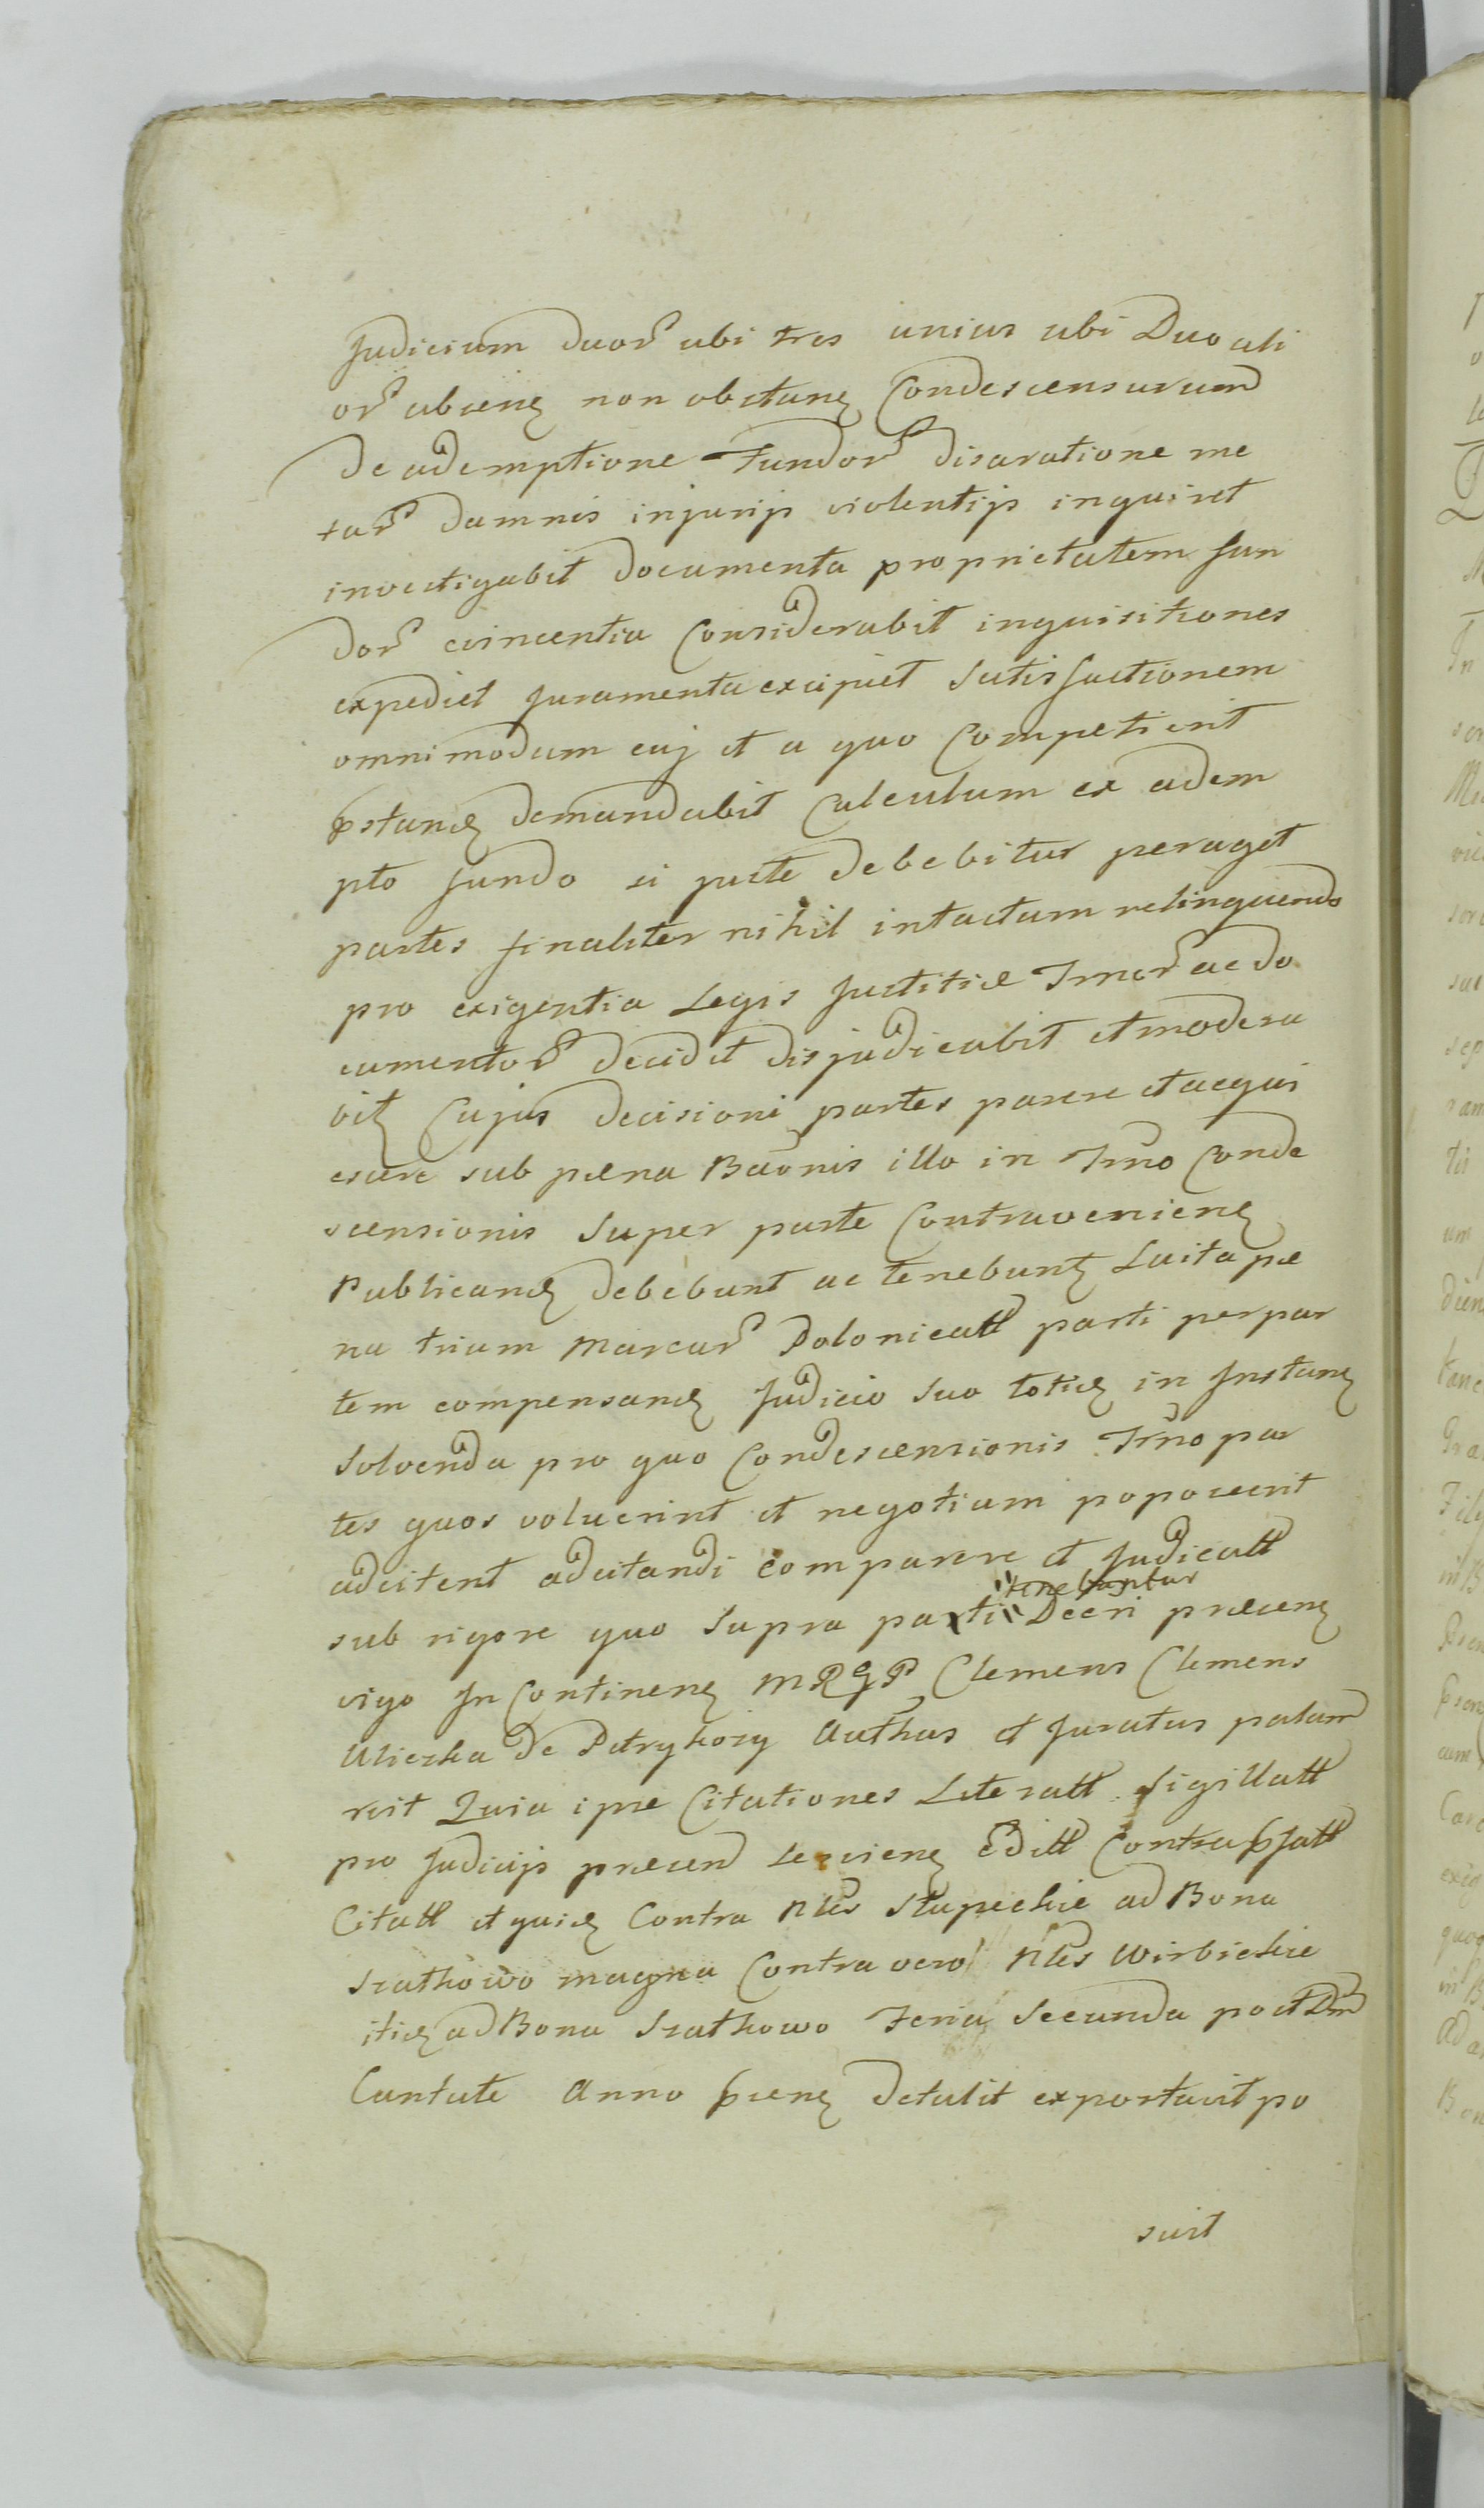 Judicium duor ubi tres unius ubi Duo ali
or absenę non obstanę Condescensurum
de ademptione Fundor disaratione me
tar damnis injurijs violentijs inquiret
investigabit documenta proprietatem fun
dor evincentia Considerabit inquisitiones
expediet Juramenta excipiet Satisfactionem
omnimodam cuj et a quo Competierit
pstandę demandabit Calculum ex adem
pto fundo si juste debebitur peraget
partes finaliter nihil intactum relinquendo
pro exigentia Legis Justitiæ Trnor ac do
cumentor decidet disjudicabit et modera
bitę Cujus decisioni partes parere et acqui
escere sub pæna Baōnis illo in Trno Conde
scensionis Super parte Contravenienę
Publicandę debebunt ac tenebuntę Luita pæ
na trium Marcar Polonicall parti per par
tem compensandę Judicio Suo totię in Instanę
Solvenda pro quo Condescensionis Trno par
tes quos voluerint et negotium poposcerit
adcitent adcitandi comparere et Judicall
sub rigore quo Supra parti tenebuntur Decri præsenę
vigo In Continenę MRGP Clemens Clemens
Uliezka de Petrykozy Authus et Juratus palam
vit Quia ipse Citationes Literall Sigillall
pro Judicijs præsen servienę Edill Contra psfall
Citall et quię Contra Nles Słupeckie ad Bona
Szatkowo magna Contra vero Nles Wirbickie
itię ad Bona Szatkowo Feria Secunda post Dm
Cantate Anno psenę detulit exportavit po
suit